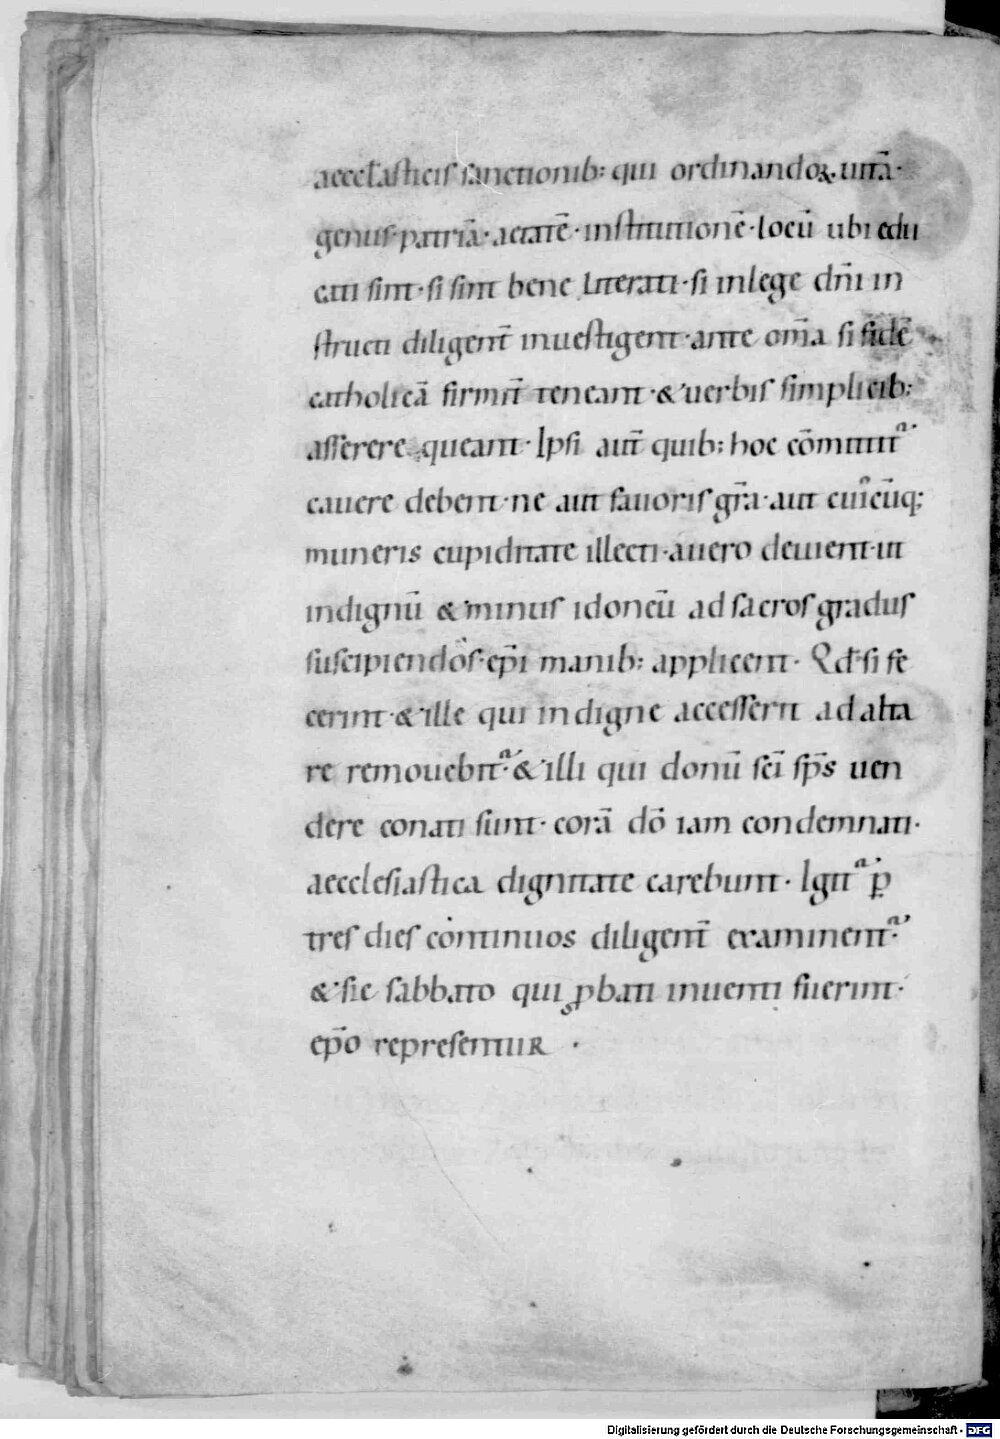 aeccłasticis sanctionib: qui ordinandoꝝ uitā·
genus·patriā·aetatē·institutionē·locū ubi edu
cati sint·si sint bene literati·si in lege dn̄i in
structi diligent̄ inuestigent·ante om̄a si fidē
catholicā firmit̄ teneant·&uerbis simplicib:
asserere queant·Ipsi aut̄ quib; hoc cōmittit᷑
cauere debent·ne aut fauoris gr̄a·aut cuiuscūq;
muneris cupiditate illecti·auero deuient·ut
indignū & minus idoneū ad sacros gradus
suscipiendos·ep̄i manib: applicent· Qđ si fe
cerint·& ille qui indigne accesserit ad alta
re remouebit᷑·& illi qui donū sc̄i sp̄s uen
dere conati sunt·corā dō iam condemnati·
aecclesiastica dignitate carebunt· Igit᷑ ꝑ
tres dies continuos diligent̄ examinent᷑·
& sic sabbato qui ꝓbati inuenti fuerint·
ep̄o representuR ·
Digitalisierung gefördert durch die Deutsche Forschungsgemeinschaft - DFG